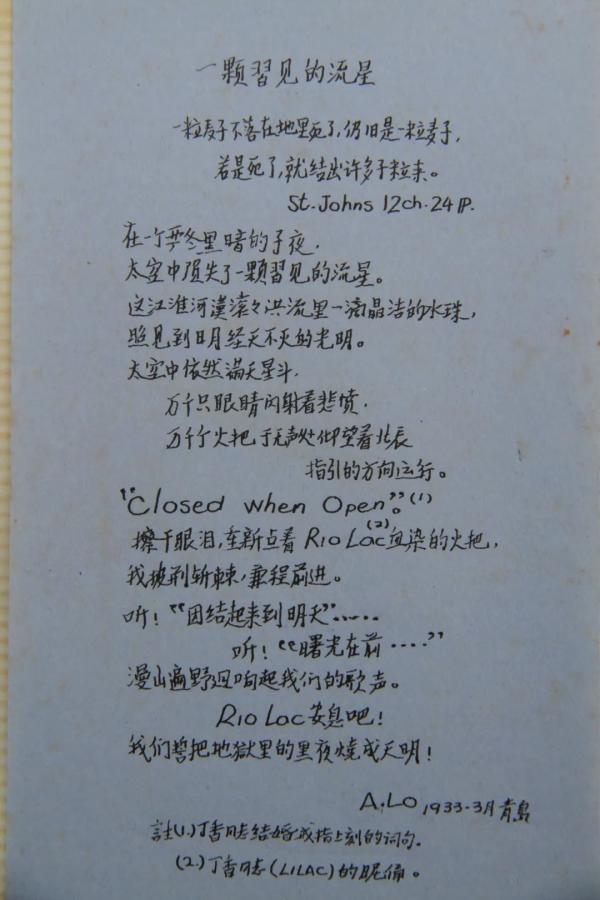 一颗習见的流星
一粒麦子不落在地里死了,仍旧是一粒麦子,
若是死了,就结出许多子粒来。
St. Johns 12ch. 24 P.
在一个严冬里暗的子夜,
太空中陨失了一颗習见的流星。
这江淮河漢滚々洪流里一滴晶洁的水珠,
照见到日月经天不灭的光明。
太空中依然满天星斗,
万千只眼睛闪射着悲愤,
万千个火把于无声处仰望着北辰
指引的方向运行。
"Closed when Open"。(1)
擦干眼泪,重新点着 Rio Lac(2)血染的火把,
我披荆斩棘,兼程前进。
听!"团结起来到明天"……
听!"曙光在前····"
漫山遍野迴响起我们的歌声。
Rio Lac 安息吧!
我们誓把地獄里的黑夜燒成天明!
A.Lo 1933·3月青島
註(1.)丁香同志结婚戒指上刻的词句.
(2.)丁香同志(LILAC)的昵偁。